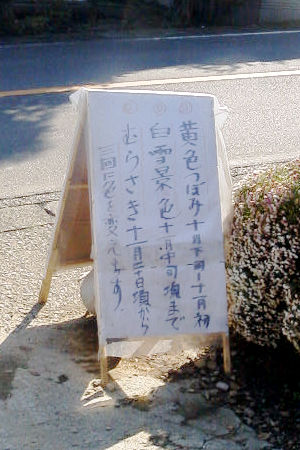 ①黄色つぼみ十月下旬〜十一月初
②白雪景色十一月中旬頃まで
③むらさき十一月二十日頃から
三回に色を変えます。